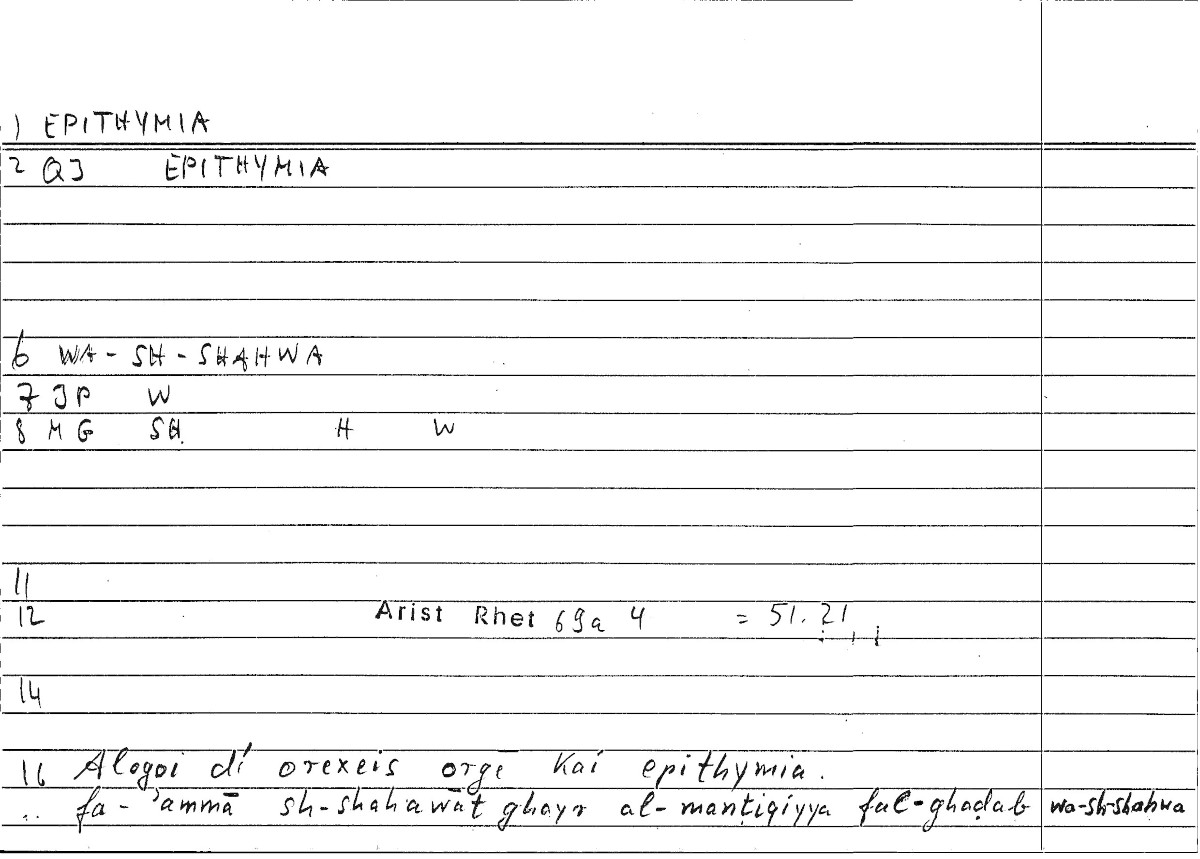 1 EPITHYMIA
2 QJ EPITHYMIA
6 WA-SH-SHAHWA
7 JP W
8 MG SH H W
11
12 Arist Rhet 69a 4 = 51. 21
14
16 Alogoi dí orexeis orgē kaí epithymia.
.. fa-'ammā sh-shahawāt ghayr al-manṭiqiyya fal-ghaḍab wa-sh-shahwa